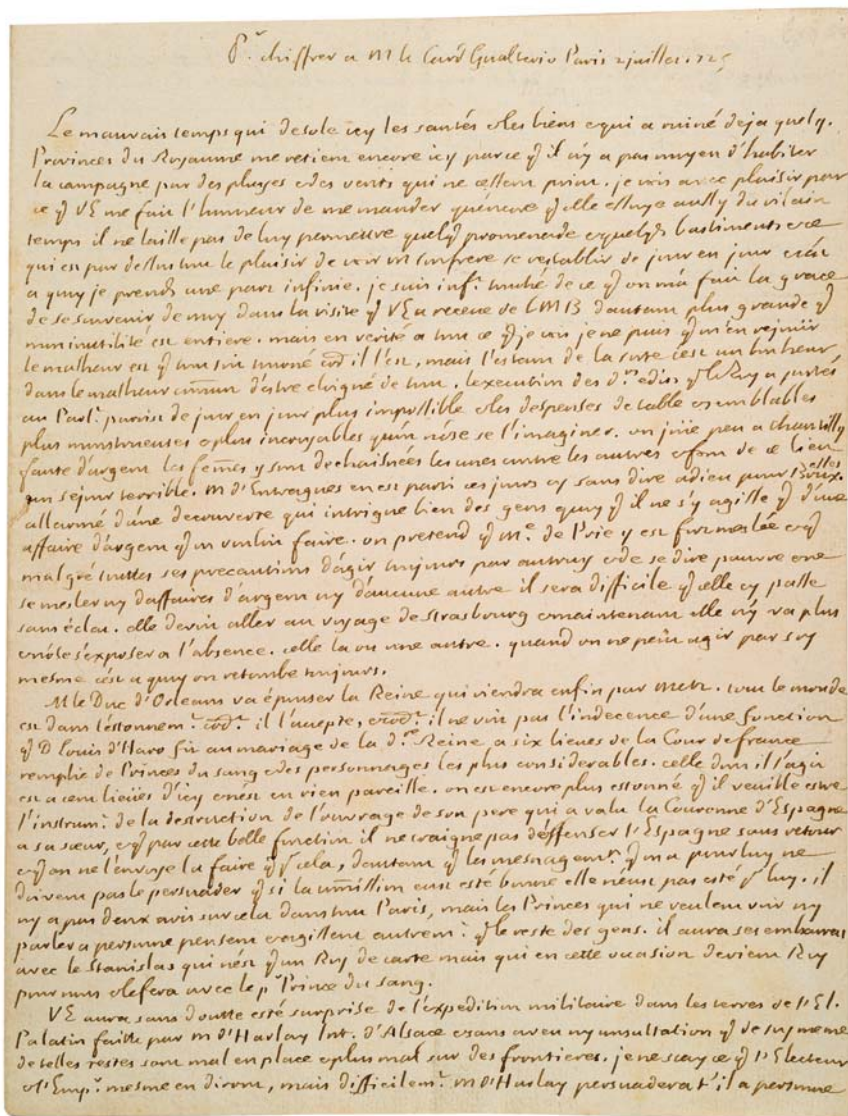 Pr. chiffrer a M le Card Gualterio Paris 2 juillet. 725
Le mauvais temps qui desole icy les santés et les biens et qui a ruiné deja quelq.
Provinces du Royaume me retient encore icy parce q il n'y a pas moyen d'habiter
la campagne par des pluyes et des vents qui ne cessent point. je vois avec plaisir par
ce q VE me fait l'honneur de me mander qu'encore q elle essuye aussy du vilain
temps il ne laisse pas de luy permettre quelq promenade et quelqs bastiments et ce
qui est par dessus tout le plaisir de voir un confrere se restablir de jour en jour et a
a quoy je prends une part infinie. je suis inft touché de ce q on m'a fait la grace
de se souvenir de moy dans la visite q VE a receue de LMB dautant plus grande q
mon inutilité est entiere. mais en verité a tout ce q je vois je ne puis q m'en rejouir
le malheur est q tout soit tourné cōe il l'est, mais l'estant de la sorte c'est un bonheur
dans le malheur cōmun d'estre eloigné de tout. l'execution des drs edits q le Roy a portés
au Parlt paroist de jour en jour plus impossible et les despenses de table et semblables
plus monstrueuses et plus incroyables qu'on n'ose se l'imaginer. on joüe peu a chantilly
faute d'argent les fem̄es y sont dechaisnées les unes contre les autres et font de ce lieu
un sejour terrible. M d'Entragues en est parti ces jours cy sans dire adieu pour Bruxelles.
allarmé d'une decouverte qui intrigue bien des gens quoy q il ne s'y agisse q d'une
affaire d'argent q on vouloit faire. on pretend q Me de Prie y est fort meslée et q
malgré touttes ses precautions d'agir toujours par autruy et de se dire pauvre et ne
se mesler ny d'affaires d'argent ny d'aucune autre il sera difficile q celle cy passe
sans éclat. elle devoit aller au voyage de strasbourg et maintenant elle n'y va plus
et n'ose s'exposer a l'absence. celle la ou une autre. quand on ne peut agir par soy
mesme c'est a quoy on retombe toujours.
M le Duc d'Orleans va épouser la Reine qui viendra enfin par Metz. tout le monde
est dans l'estonnemt. il l'accepte, il ne voit pas l'indecence d'une fonction
q D Louis d'Haro fit au mariage de la dre Reine a six lieues de la Cour de france
remplie de Princes du sang et des personnages les plus considerables. celle dont il s'agit
est a cent lieües d'icy et n'est en rien pareille. on est encore plus estonné q il veuille estre
l'instrumt de la destruction de l'ouvrage de son pere qui a valu la Couronne d'Espagne
a sa sœur, et q par cette belle fonction il ne craigne pas d'offenser l'Espagne sans retour
et q on ne l'envoye la faire q pr cela, dautant q les mesnagemts q on a pour luy ne
doivent pas le persuader q si la com̄ission eust esté bonne elle n'eust pas esté pr luy. il
n'y a pas deux avis sur cela dans tout Paris, mais les Princes qui ne veulent voir ny
parler a personne pensent et agissent autremt q le reste des gens. il aura ses embarras
avec le Stanislas qui n'est q un Roy de carte mais qui en cette occasion devient Roy
pour nous et le fera avec le pr Prince du sang.
VE aura sans doutte esté surprise de l'expedition militaire dans les terres de l'El.
Palatin faitte par M d'Harlay Int. d'Alsace et sans aveu ny consultation q de soy meme
de telles restes sont mal en place et plus mal sur des frontieres. je ne sçay ce q l'Electeur
et l'Empr mesme en diront, mais difficilemt M d'Harlay persuadera t'il a personne